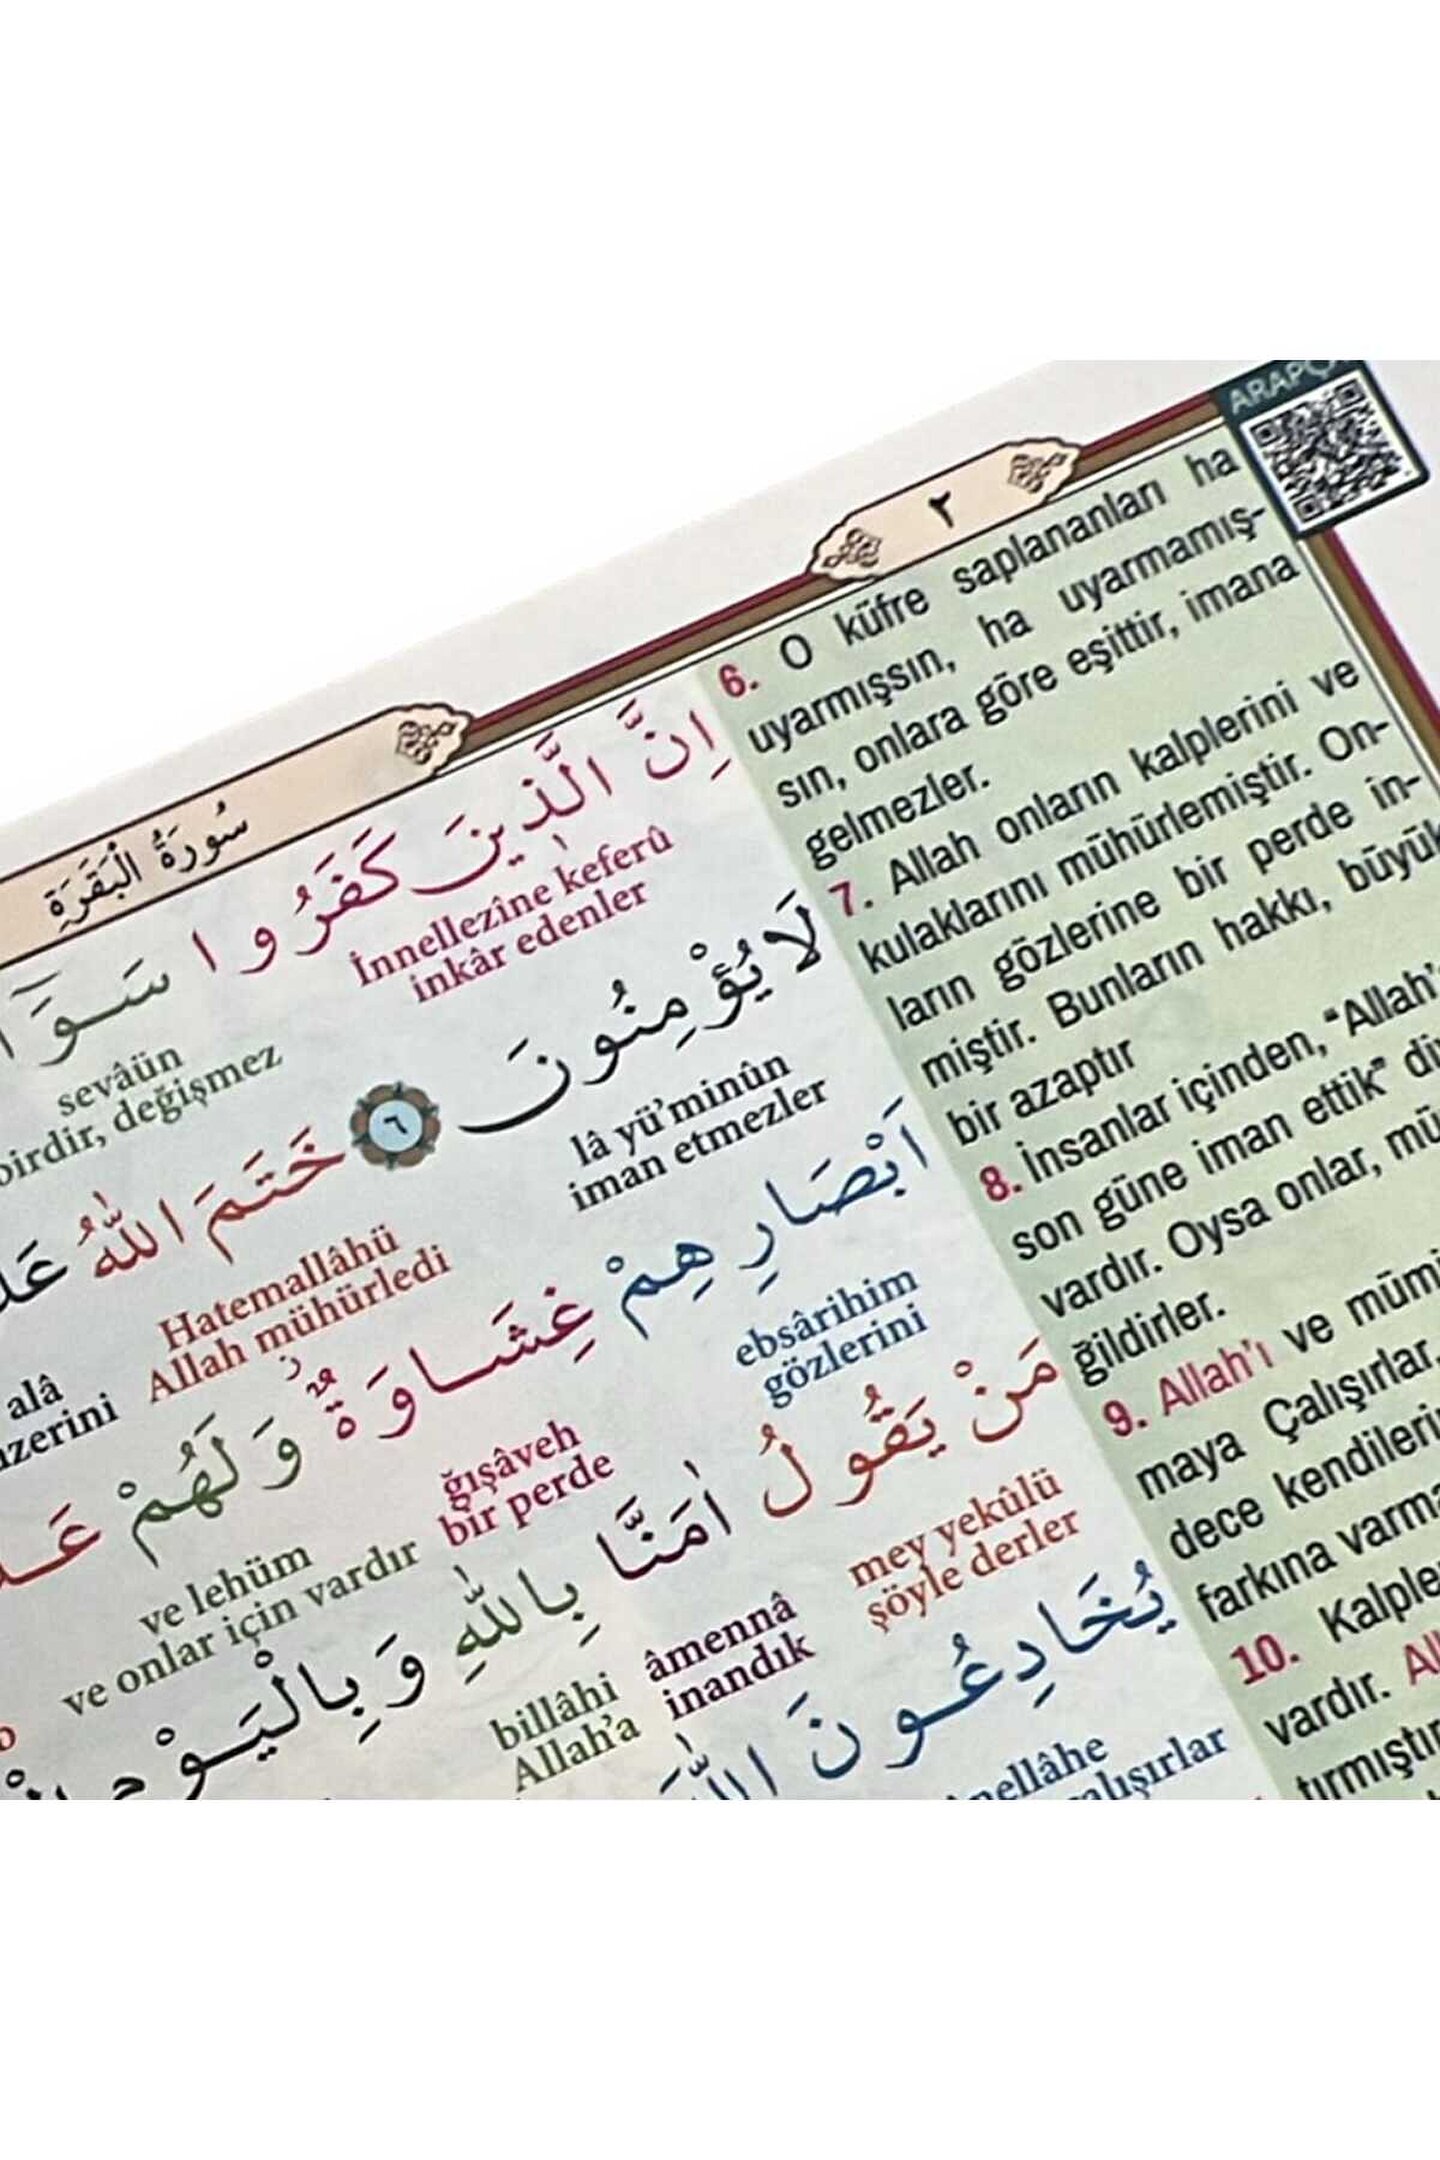 ARAPÇA
٢
سُورَةُ الْبَقَرَةِ
6. O küfre saplananları ha
uyarmışsın, ha uyarmamış-
sın, onlara göre eşittir, imana
gelmezler.
7. Allah onların kalplerini ve
kulaklarını mühürlemiştir. On-
ların gözlerine bir perde in-
miştir. Bunların hakkı, büyük
bir azaptır
8. İnsanlar içinden, “Allah’
son güne iman ettik” di
vardır. Oysa onlar, mü
ğildirler.
9. Allah’ı ve mümi
maya Çalışırlar,
dece kendileri
farkına varma
10. Kalple
vardır. All
tırmıştır
اِنَّ الَّذِينَ كَفَرُوا سَوَٓا
İnnellezîne keferû
inkâr edenler
sevâün
birdir, değişmez
لَا يُؤْمِنُونَ ٦ خَتَمَ اللّٰهُ عَلٰ
lâ yü’minûn
iman etmezler
Hatemallâhü
Allah mühürledi
alâ
üzerini
اَبْصَارِهِمْ غِشَاوَةٌ وَلَهُمْ عَذَ
ebsârihim
gözlerini
ğışâveh
bir perde
ve lehüm
ve onlar için vardır
مَنْ يَقُولُ اٰمَنَّا بِاللّٰهِ وَبِالْيَوْمِ
mey yekûlü
şöyle derler
âmennâ
inandık
billâhi
Allah’a
يُخَادِعُونَ اللّٰهَ
nellâhe
alışırlar